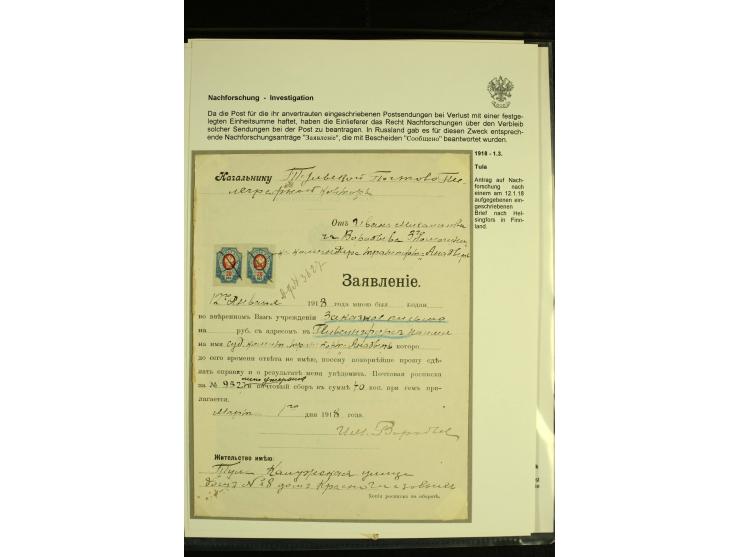 Nachforschung - Investigation
Da die Post für die ihr anvertrauten eingeschriebenen Postsendungen bei Verlust mit einer festge-
legten Einheitsumme haftet, haben die Einlieferer das Recht Nachforschungen über den Verbleib
solcher Sendungen bei der Post zu beantragen. In Russland gab es für diesen Zweck entspreche-
ende Nachforschungsanträge "Заявленіе", die mit Bescheiden "Сообщено" beantwortet wurden.
1918 - 1.3.
Tula
Antrag auf Nach-
forschung nach
einem am 12.1.18
aufgegebenen ein-
geschriebenen
Brief nach Hel-
singfors in Finn-
land.
Начальнику Тульской Почтово Те-
леграфной Конторы
Отъ Ивана
Воробьева
Заявленіе.
12го Января 1918 года мною было подано
во ввѣренномъ Вамъ учрежденіи Заказное письмо
на руб. съ адресомъ въ Гельсингфорсъ
на имя которо
до сего времени отвѣта не имѣю, посему покорнѣйше прошу сдѣ-
лать справку и о результатѣ меня увѣдомить. Почтовая росписка
за № 952 и почтовый сборъ въ суммѣ 40 коп. при семъ при-
лагается.
Мартъ 1го дня 1918 года.
Жительство имѣю:
Тула Калужская улица
домъ № 28 домъ
Копія росписки на оборотѣ.